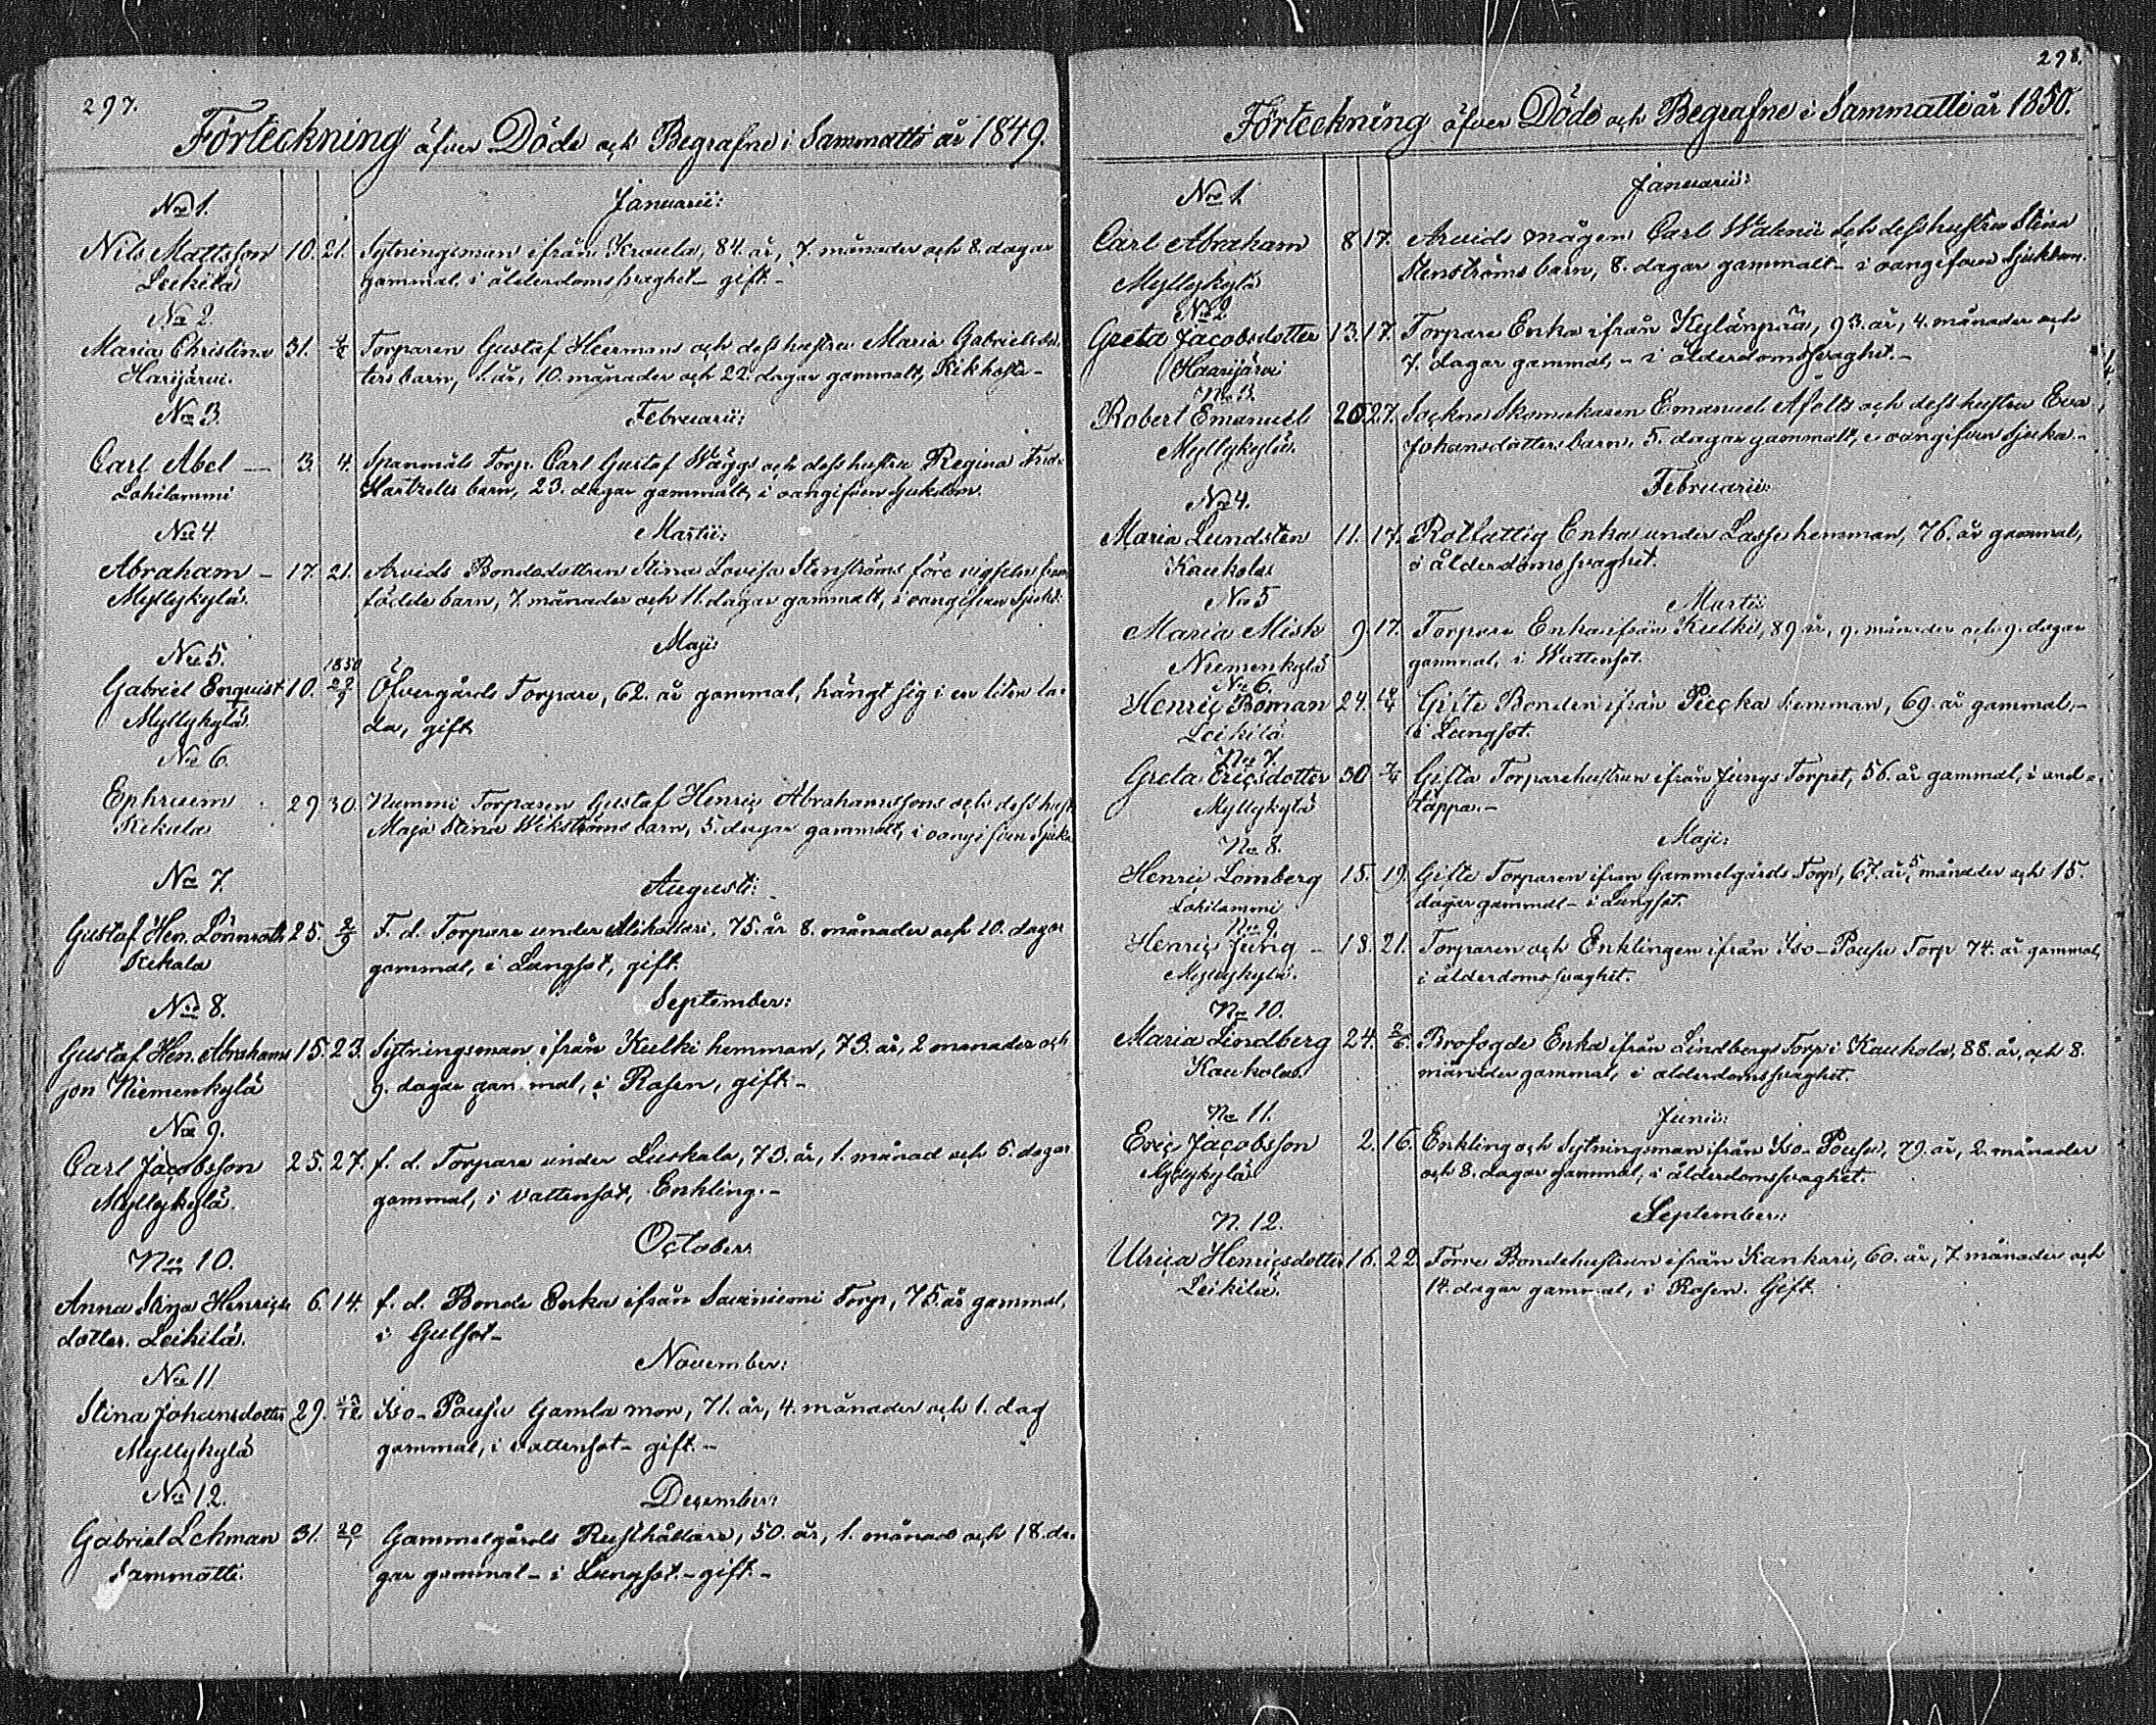 297.
Förteckning öfver Döde och Begrafne i Sammatti år 1849.
Januarii:
No 1.
Nils Mattsson 10. 21. Sytningsman ifrån Kraula, 84. år, 7. månader och 8. dagar
Leikilä gammal, i ålderdomssvaghet - gift. -
No 2.
Maria Christina 31. Torparen Gustaf Heermans och dess hustru Maria Gabrielsdot-
Harijärvi. ters barn, 1. år, 10. månader och 22. dagar gammalt, Kikhosta -
No 3. Februarii:
Carl Abel — 3. 4. Spanmåls Torp. Carl Gustaf Wäggs och dess hustru Regina Fred.
Lohilammi Hartzells barn, 23. dagar gammalt, i oangifven Sjukdom.
No 4. Martii:
Abraham - 17. 21. Arvids Bondedottren Stina Lovisa Stenströms före vigseln fram
Myllykylä. födde barn, 7. månader och 11. dagar gammalt, i oangifven Sjukd.
No 5. Maji:
1850
Gabriel Enquist 10. Öfvergårds Torpare, 62. år gammal, hängt sig i en liten la-
Myllykylä. da, gift
No 6.
Ephraim 29 30. Nummi Torparen Gustaf Henriç Abrahamssons och dess hust.
Kikala Maja Stina Wikströms barn, 5. dagar gammalt, i oangifven Sjukd
No 7 Augusti:
Gustaf Hen. Lönnroth 25. 2/9 F. d. Torpare under 75. år 8. månader och 10. dagar
Kikala gammal, i Lungsot, gift.
No 8. September:
Gustaf Hen. Abrahams 15. 23. Sytningsman ifrån Kulki hemman, 73. år, 2 månader och
son Niemenkylä 9. dagar gammal, i Rosen, gift. -
No 9.
Carl Jaçobsson 25. 27. f. d. Torpare under Luskala, 73. år, 1. månad och 6. dagar
Myllykylä. gammal, i vattensot, Enkling. -
No 10. October
Anna Stina Henriçs 6. 14. f. d. Bonde Enka ifrån Torp, 75. år gammal,
dotter. Leikilä. i Gulsot -
No 11 November:
Stina Johansdotter 29. 23/12 Iso-Pousu Gamla mor, 71. år, 4. månader och 1. dag
Myllykylä gammal, i vattensot - gift. -
No 12. Deçember:
Gabriel Lehman 31. 20/1 Gammelgårds Rusthållare, 50. år, 1. månad och 18. da-
Sammatti. gar gammal - i Lungsot. - gift -
298.
Förteckning öfver Döde och Begrafne i Sammatti år 1850.
No 1. Januarii:
Carl Abraham 8 17. Arvids mågen Carl Walenii och dess hustru Stina
Myllykylä Stenströms barn, 8. dagar gammalt - i oangifven Sjukdom.
No 2
Greta Jacobsdotter 13. 17. Torpare Enka ifrån Kylänpää, 93. år, 4. månader och
Haarijärvi 7. dagar gammal, - i ålderdomssvaghet. -
No 3.
Robert Emanuel 27. Sockne Skomakaren Emanuel Åfelts och dess hustru Eva
Myllykylä. Johansdotters barn, 5. dagar gammalt, i oangifven Sjukd. -
Februarii
No 4.
Maria Lundsten 11. 17. Rotfattig Enka under Lasse hemman, 76. år gammal,
Kaukola i ålderdomssvaghet.
No 5 Martii
Maria Misk 9. 17. Torpare Enka ifrån Kulki, 89 år, 9. månader och 9. dagar
Niemenkylä gammal, i Wattensot.
No 6.
Henriç Boman 24. Gifte Bonden ifrån Pieçka hemman, 69. år gammal, -
Leikilä i Lungsot.
No 7.
Greta Eriçsdotter 30 7/4 Gifta Torparehustrun ifrån Jungs Torpet, 56. år gammal, i and-
Myllykylä täppa. -
No 8. Maji:
Henriç Lomberg 15. 19. Gifte Torparen ifrån Gammelgårds Torp, 67. år, 5 månader och 15.
Lohilammi dagar gammal - i Lungsot.
No 9.
Henriç Jung - 18. 21. Torparen och Enklingen ifrån Iso-Pousu Torp 74. år gammal,
Myllykylä. i ålderdomssvaghet.
No 10.
Maria Lindberg 24. 2/6. Brofogde Enka ifrån Lindbergs Torp i Kaukola, 88. år, och 8.
Kaukola. månader gammal, i ålderdomssvaghet.
No 11. Junii:
Eriç Jaçobsson 2. 16. Enkling och Sytningsman ifrån Iso-Pousu, 79. år, 2. månader
Myllykylä och 8. dagar gammal, i ålderdomssvaghet.
N. 12. September:
Ulriça Henriçsdotter 16. 22 Förre Bondehustrun ifrån Kankari, 60. år, 7. månader och
Leikilä. 14. dagar gammal, i Rosen. Gift.